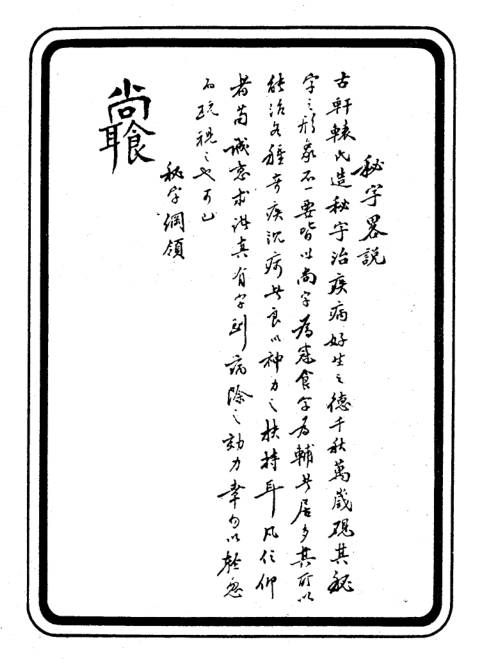 秘字畧説
古軒轅氏造秘字治疾病好生之德千秋萬歲覌其秘
字之形象不一要皆以尚字為冠食字為輔者居多其所以
能治各種奇疾沉疴者良以神力之扶持耳凡信仰
者苟誠意求真有字到病除之効力幸勿以輕忽
而疏視之也可已
秘字綱領